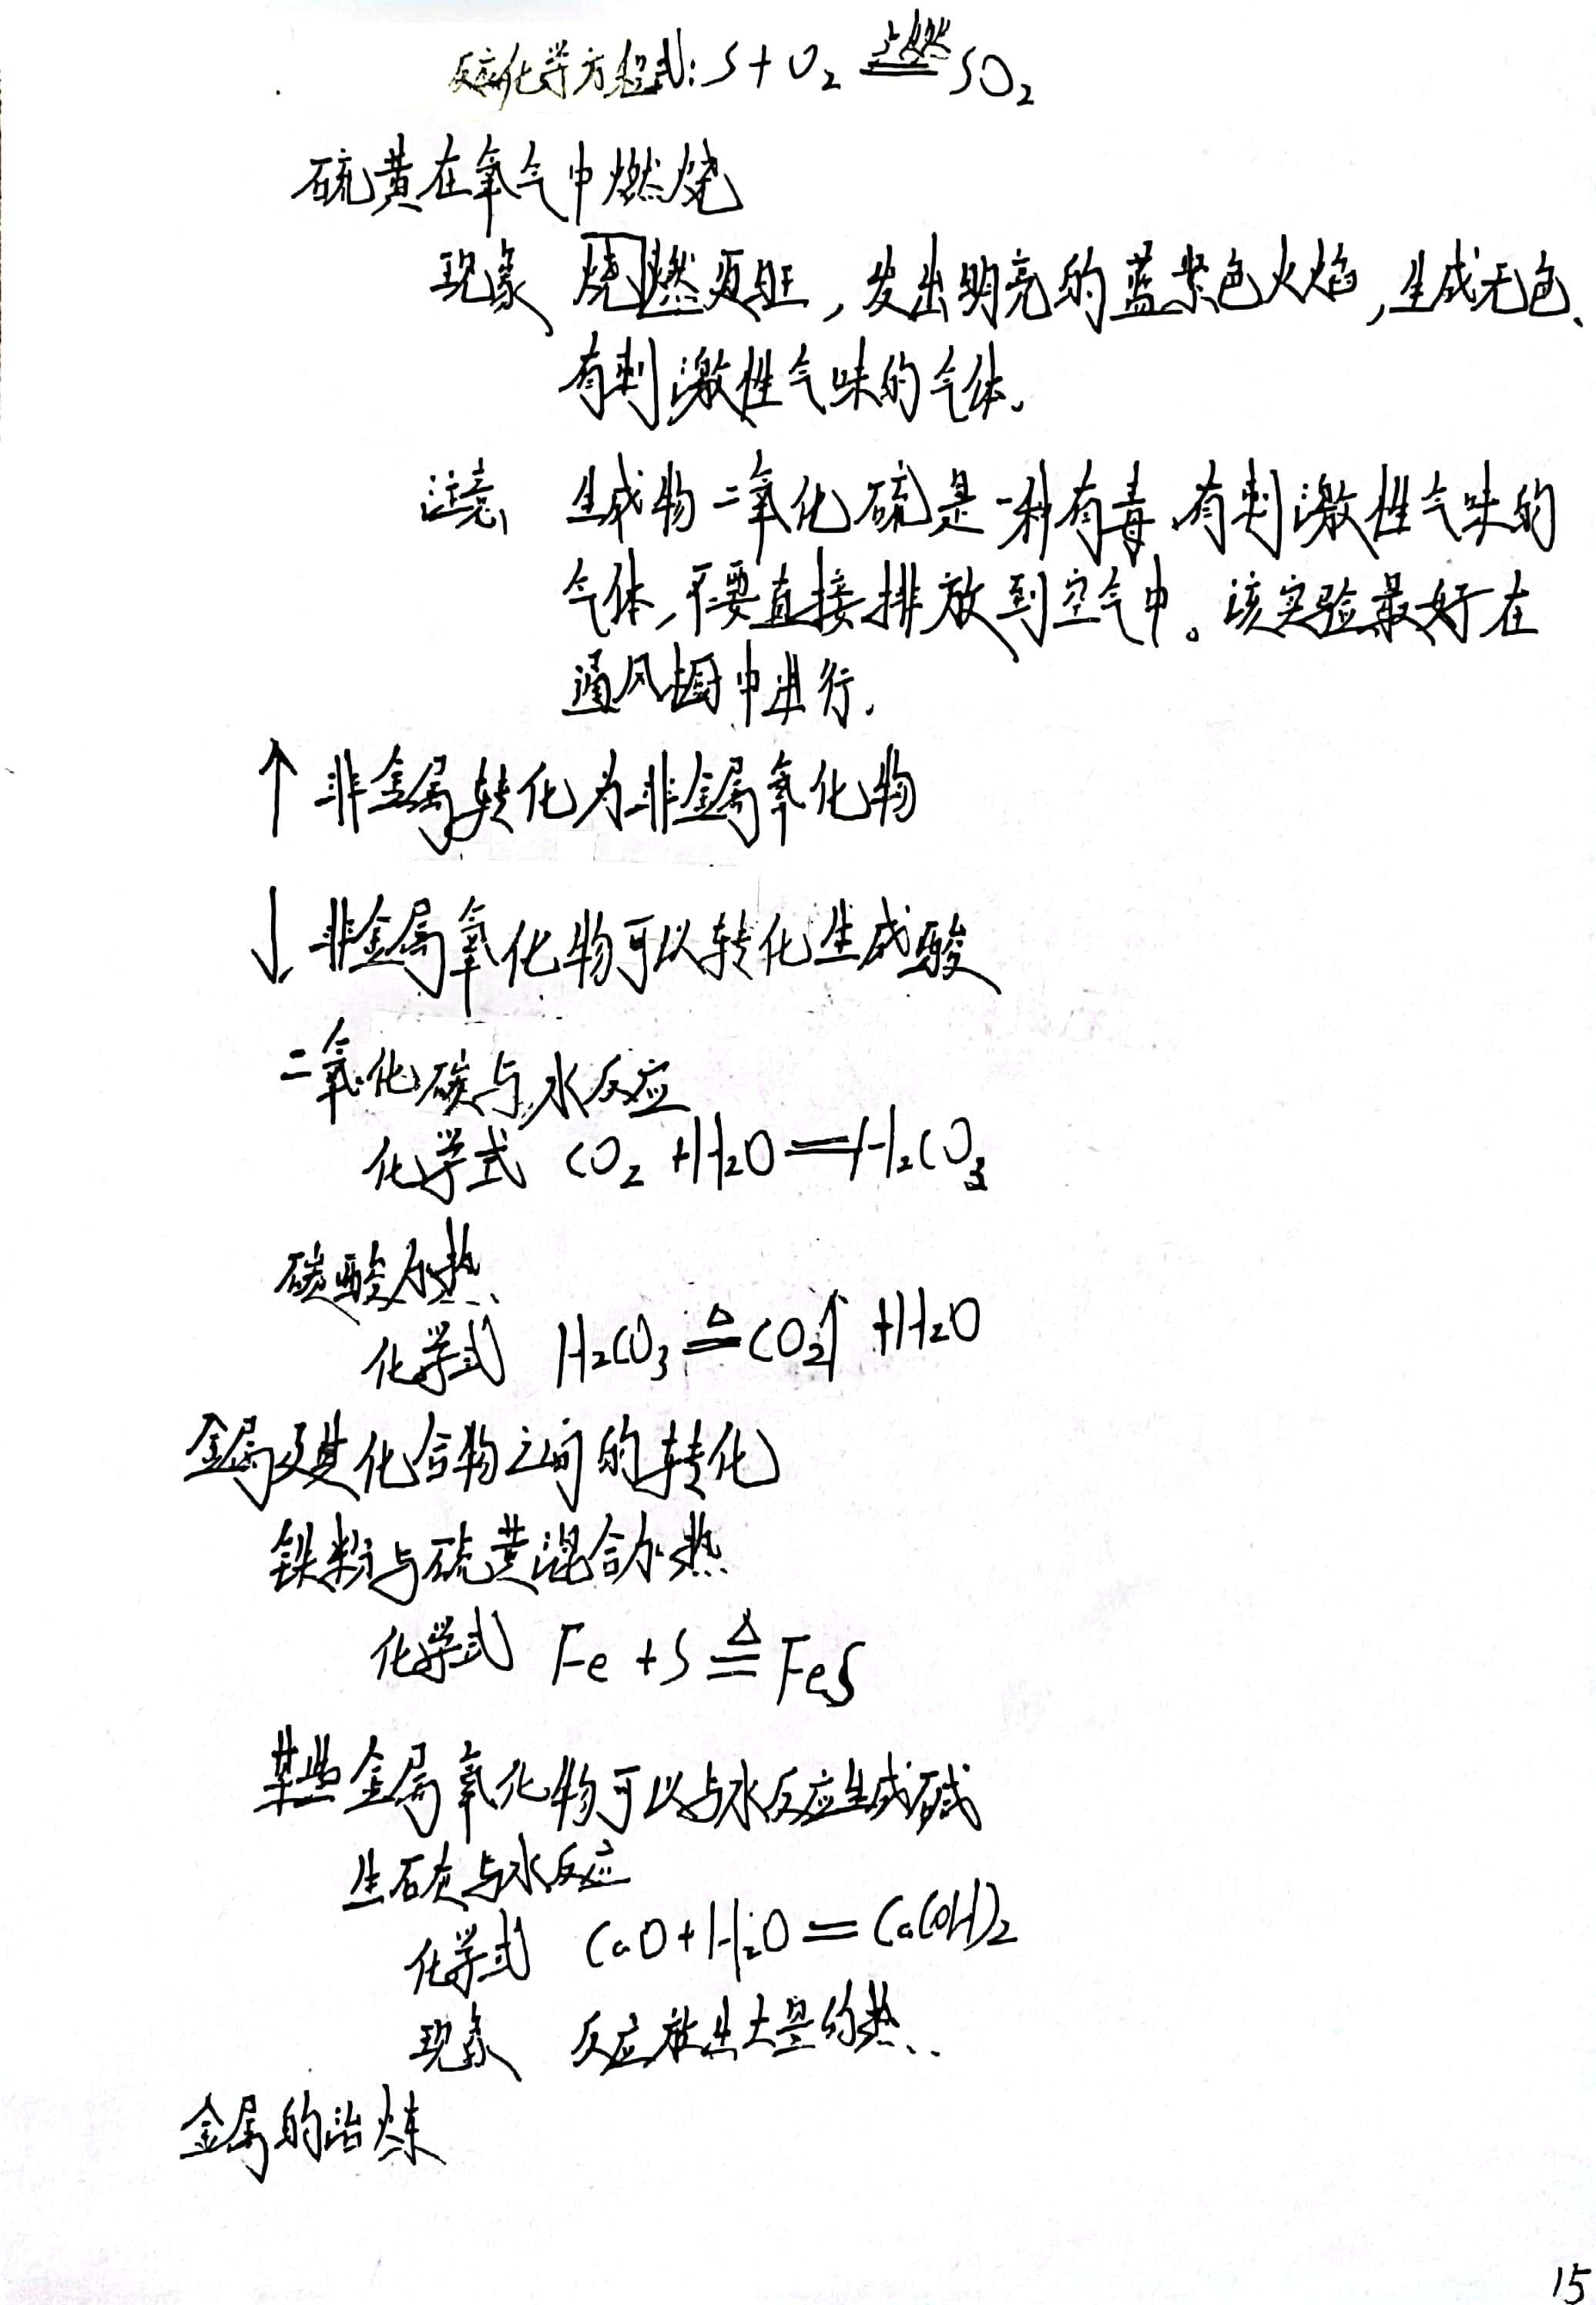 反应化学方程式:S+O₂ 点燃═ SO₂
硫黄在氧气中燃烧
现象 烧燃更旺,发出明亮的蓝紫色火焰,生成无色、
有刺激性气味的气体。
注意 生成物二氧化硫是一种有毒、有刺激性气味的
气体,不要直接排放到空气中。该实验最好在
通风橱中进行.
↑ 非金属转化为非金属氧化物
↓ 非金属氧化物可以转化生成酸
二氧化碳与水反应
化学式 CO₂+H₂O═H₂CO₃
碳酸加热
化学式 H₂CO₃ △═ CO₂↑+H₂O
金属及其化合物之间的转化
铁粉与硫黄混合加热
化学式 Fe+S △═ FeS
某些金属氧化物可以与水反应生成碱
生石灰与水反应
化学式 CaO+H₂O═Ca(OH)₂
现象 反应放出大量的热.
金属的冶炼
15